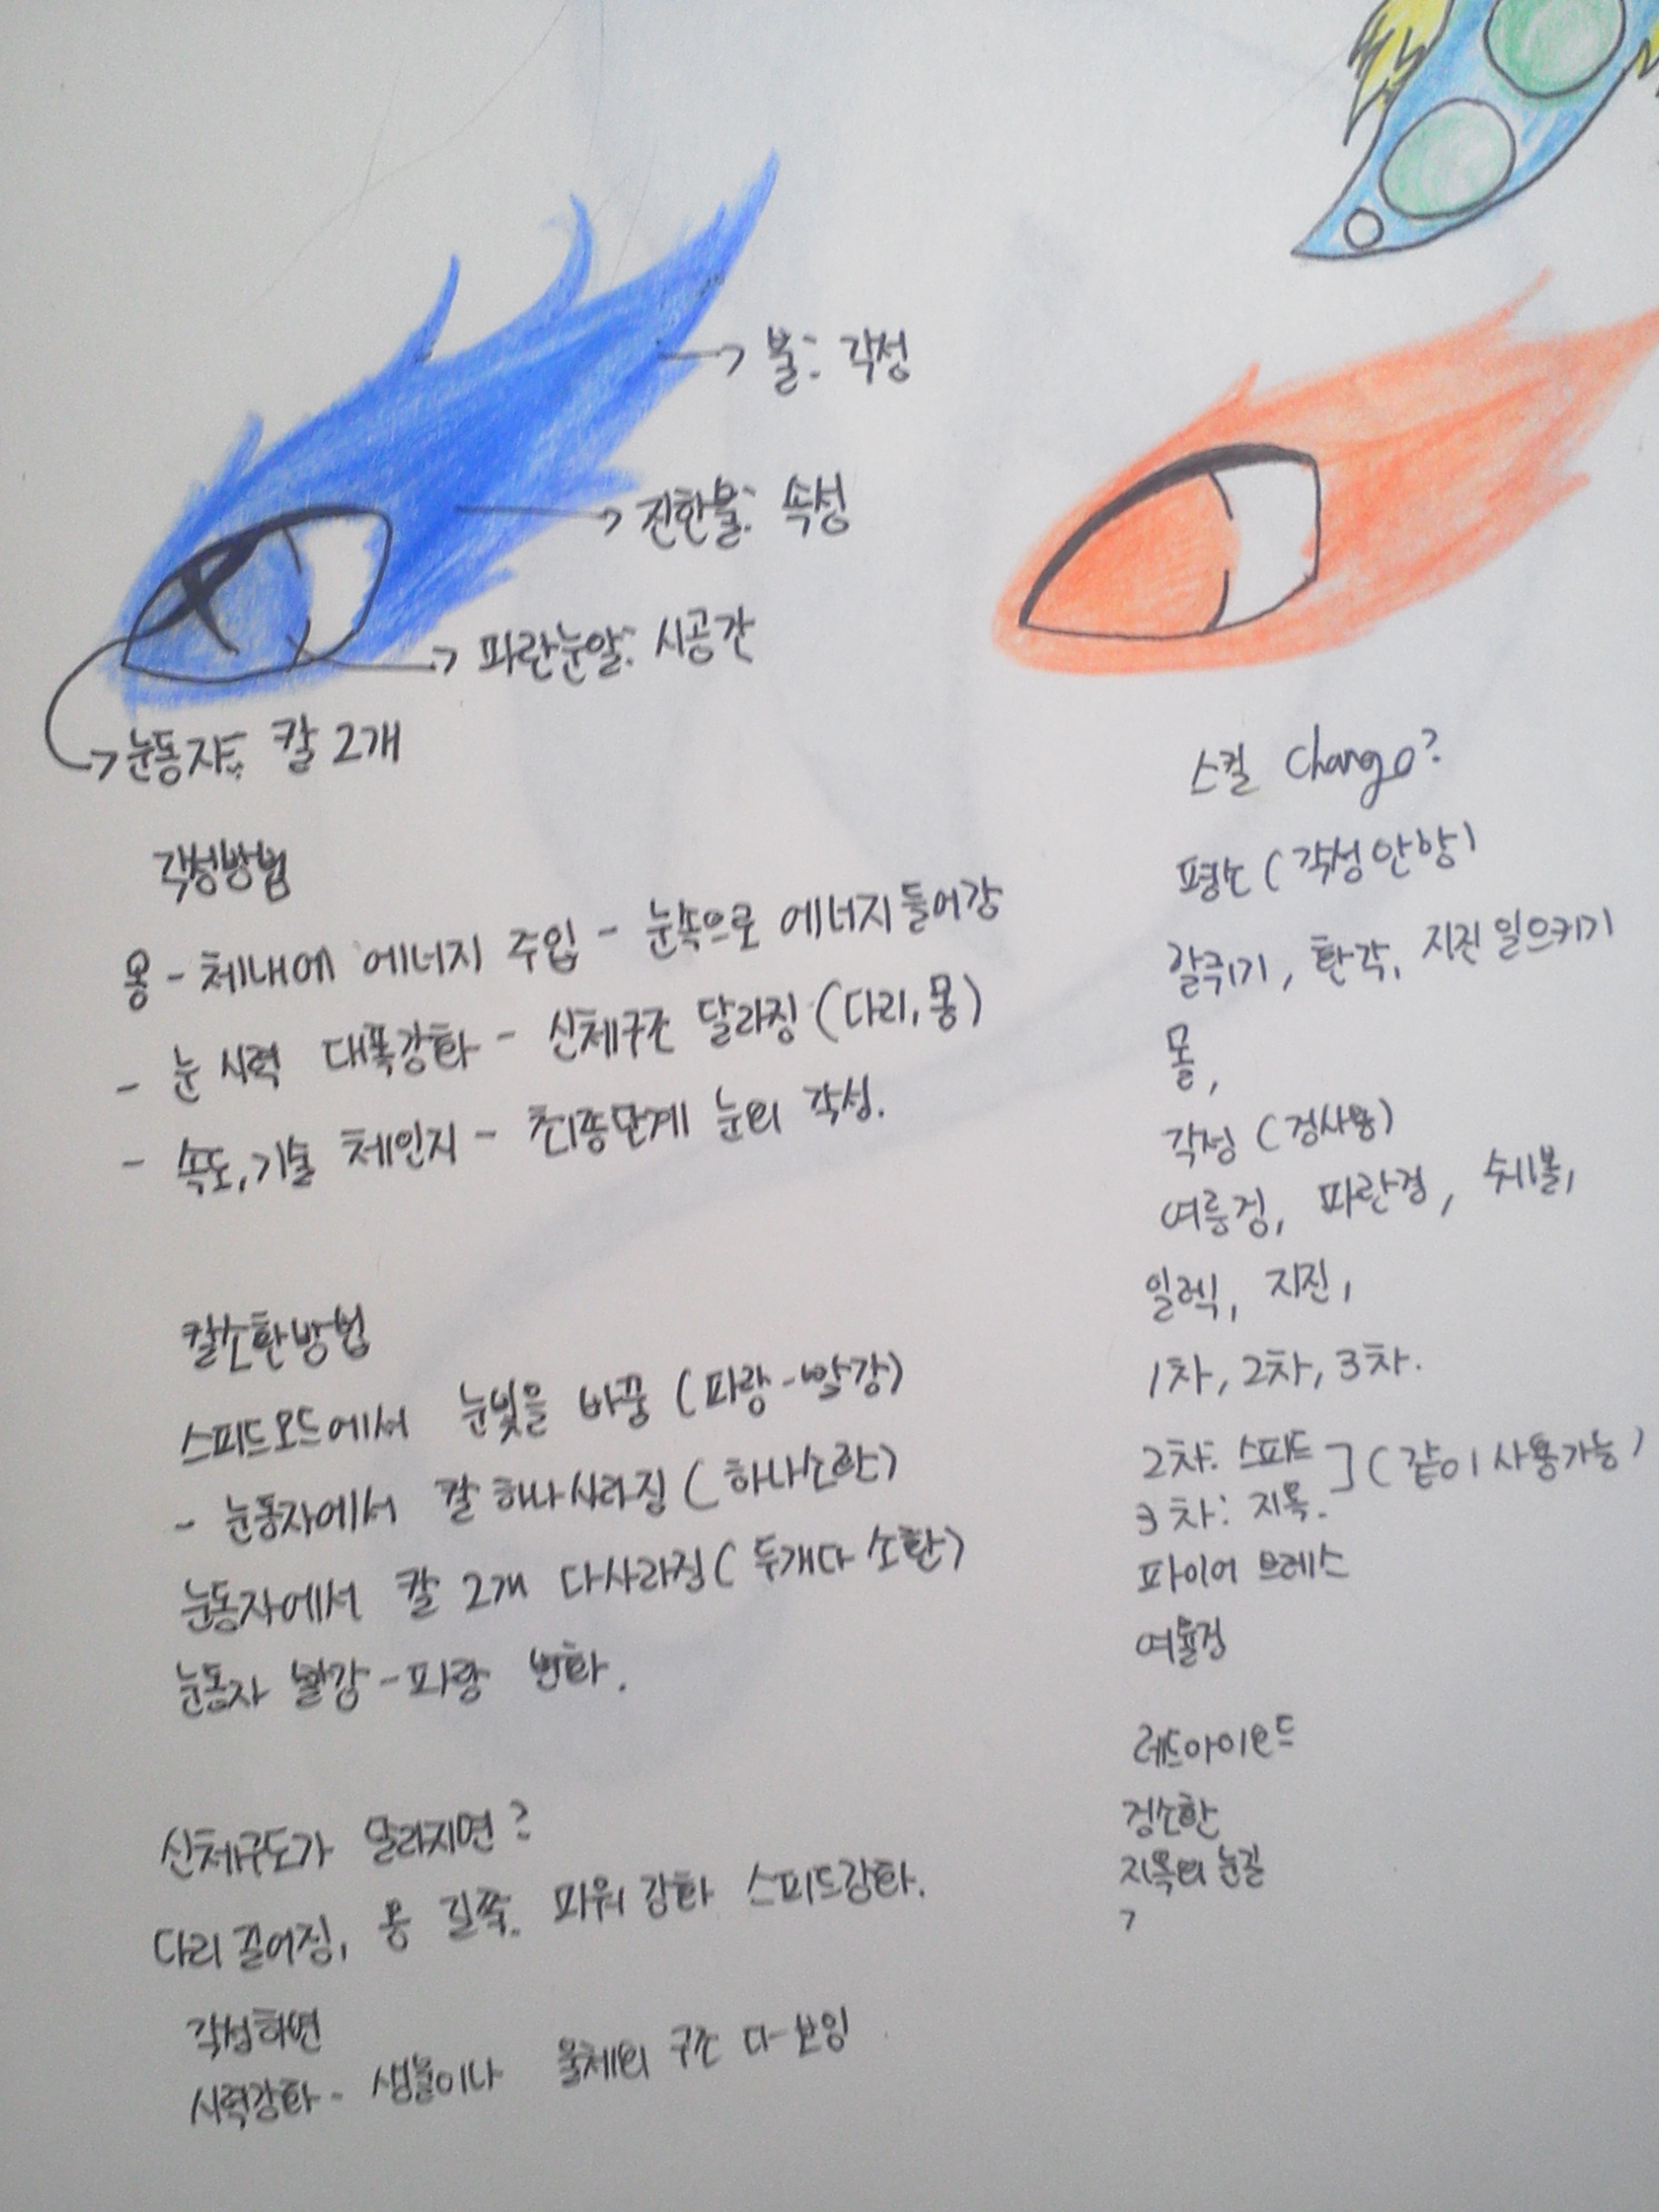 불: 각성
진한불: 속성
파란눈알: 시공간
눈동자: 칼 2개
각성방법
몽 - 체내에 에너지 주입 - 눈속으로 에너지들어강
- 눈 시력 대폭강화 - 신체구조 달라징 (다리, 몽)
- 속도, 기술 체인지 - 최종단계 눈의 각성.
칼소환방법
스피드모드에서 눈빛을 바꿍 (파랑-빨강)
- 눈동자에서 칼 하나사라징 (하나소환)
눈동자에서 칼 2개 다사라징 (두개다 소환)
눈동자 빨강-파랑 변화.
신체구도가 달라지면?
다리 길어징, 몽 길쭉. 파워강화 스피드강화.
각성하면
시력강화 - 생물이나 물체의 구조 다-보잉
스킬 Change?
평소 (각성안항)
할퀴기, 환각, 지진일으키기
물,
각성 (검사용)
여릉검, 파란검, 쉐볼,
일렉, 지진,
1차, 2차, 3차.
2차: 스피드
3차: 지옥. ] (같이 사용가능)
파이어 브레스
레드아이
검소환
지옥의 눈길
?